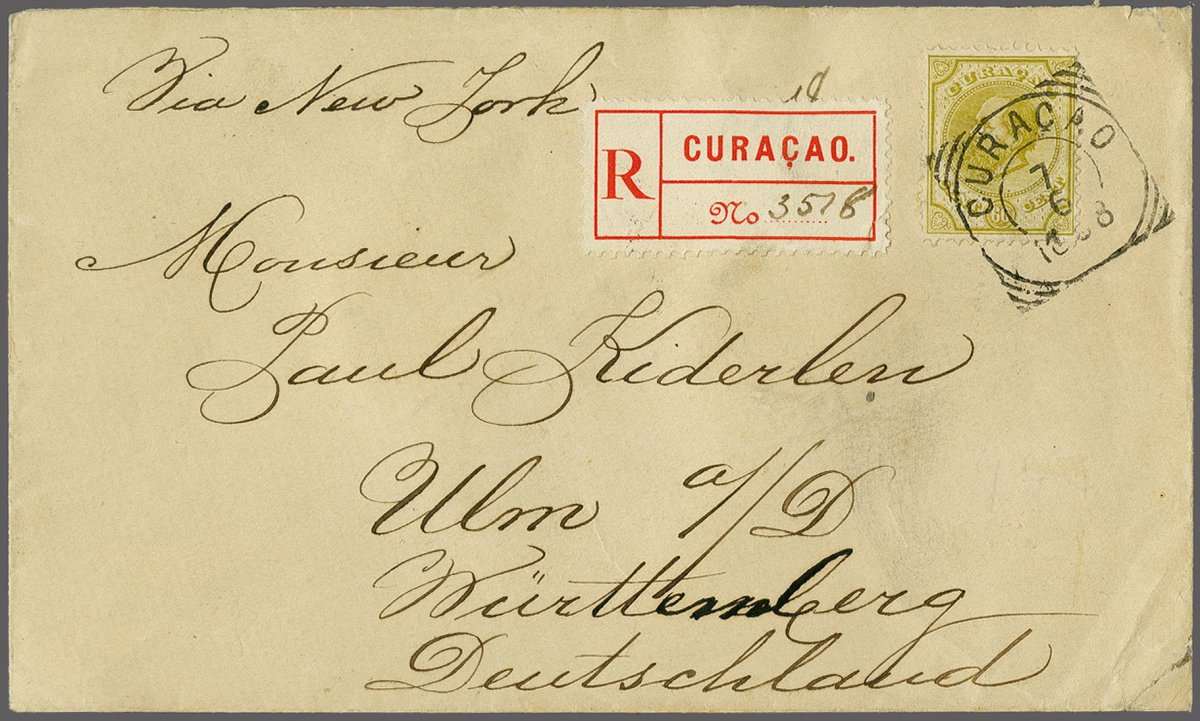 Via New York
R
CURAÇAO.
No 3518
CURAÇAO
CENT
CURAÇAO
7
6
Monsieur
Paul Kiderlen
Ulm a/D
Württemberg
Deutschland